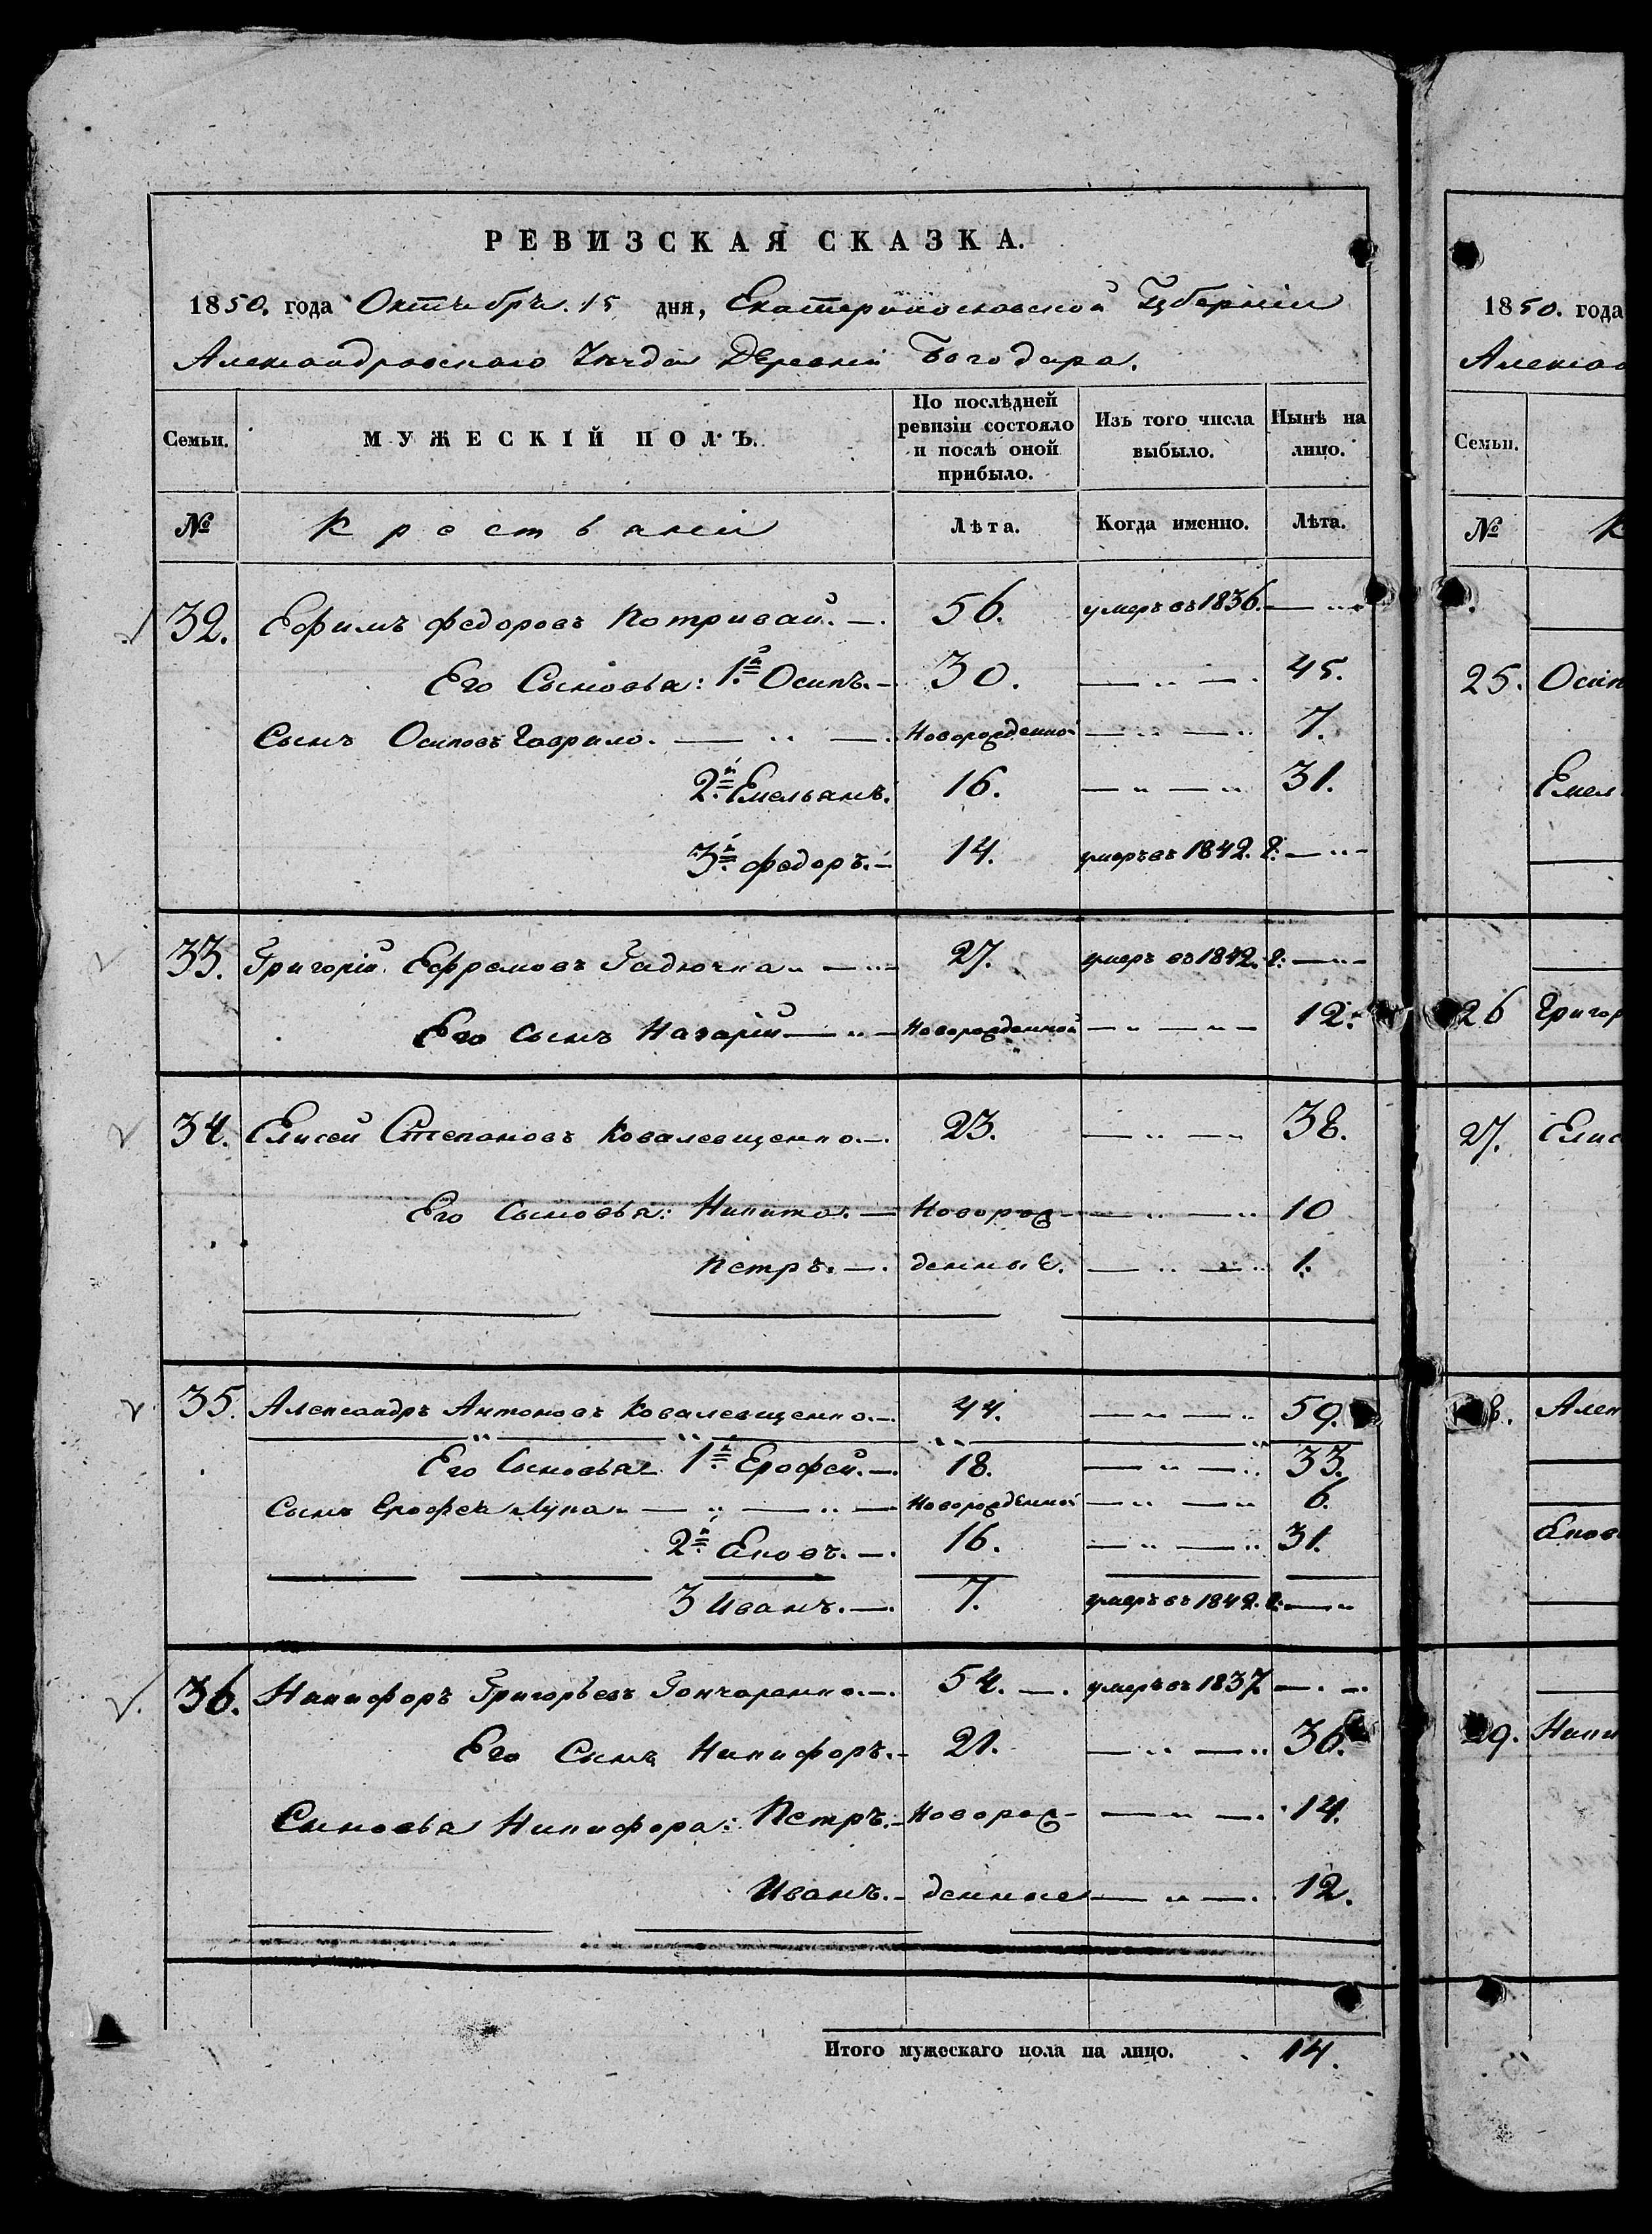 РЕВИЗСКАЯ СКАЗКА.
1850. года Октября. 15 дня, Екатеринославской Губерніи
Александровскаго Уезда Деревни Богодара.
Семьи. МУЖЕСКІЙ ПОЛЪ. По послѣдней ревизіи состояло и послѣ оной прибыло. Изъ того числа выбыло. Нынѣ на лицо.
№ Крестьяне Лѣта. Когда именно. Лѣта.
32. Ефимъ Федоровъ Котривай. 56. умеръ въ 1836.
Его Сыновья: 1й Осипъ. 30. 45.
Сынъ Осиповъ Гаврило. Новорожденной 7.
2й Емельянъ. 16. 31.
3й Федоръ. 14. умеръ въ 1842. г.
33. Григорій Ефремовъ Гадючка 27. умеръ въ 1842. г.
Его Сынъ Назарій Новорожденной 12.
34. Елисей Степановъ Ковалевщенко. 23. 38.
Его Сыновья: Никита. Новорож- 10
Петръ. денные. 1.
35. Александръ Антоновъ Ковалевщенко. 44. 59.
Его Сыновья 1й Ерофей. 18. 33.
Сынъ Ерофея Лука Новорожденной 6.
2й Яковъ. 16. 31.
3 Иванъ. 7. умеръ въ 1842. г.
36. Никифоръ Григорьевъ Гончаренко. 54. умеръ въ 1837
Его Сынъ Никифоръ. 21. 36.
Сыновья Никифора: Петръ. Новорож- 14.
Иванъ. денные 12.
Итого мужескаго пола на лицо. 14.
1850. года
Семьи.
№ К
25. Осип
Емел
26 Григор
27. Елис
8. Алек
Яков
29. Ники